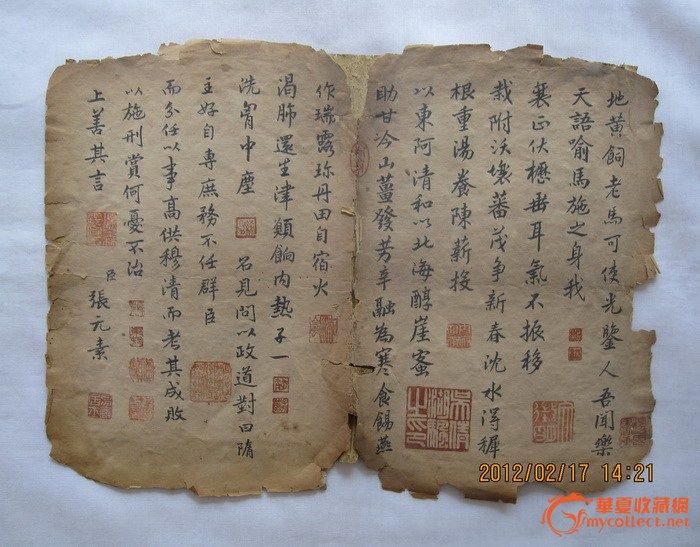 地黄飼老馬可使光鑒人吾聞樂
天語喻馬施之身我
襄正伏櫪垂耳氣不振移
栽附沃壤蕃茂争新春沈水得穉
根重湯養陳薪投
以東阿清和以北海醇崖蜜
助甘吟山薑發芳辛融為寒食餳燕
作瑞露珎丹田自宿火
渴肺還生津願餉内熱子一
洗胷中塵 召見問以政道對曰隋
主好自專庶務不任群臣
而分任以事高供穆清而考其成敗
以施刑賞何憂不治
上善其言
臣張元素
2012/02/17 14:21
華夏收藏網
mycollect.net